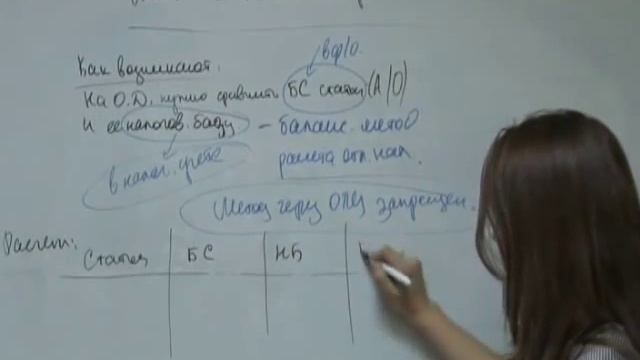 в ф/о.
Как возникают.
На О.Д. нужно сравнить БС статьи (А/О)
и ее налогов. базу – баланс. метод
в налог. учете расчета отл. нал.
Метод через ОПУ запрещен.
Расчет:
Статья БС НБ